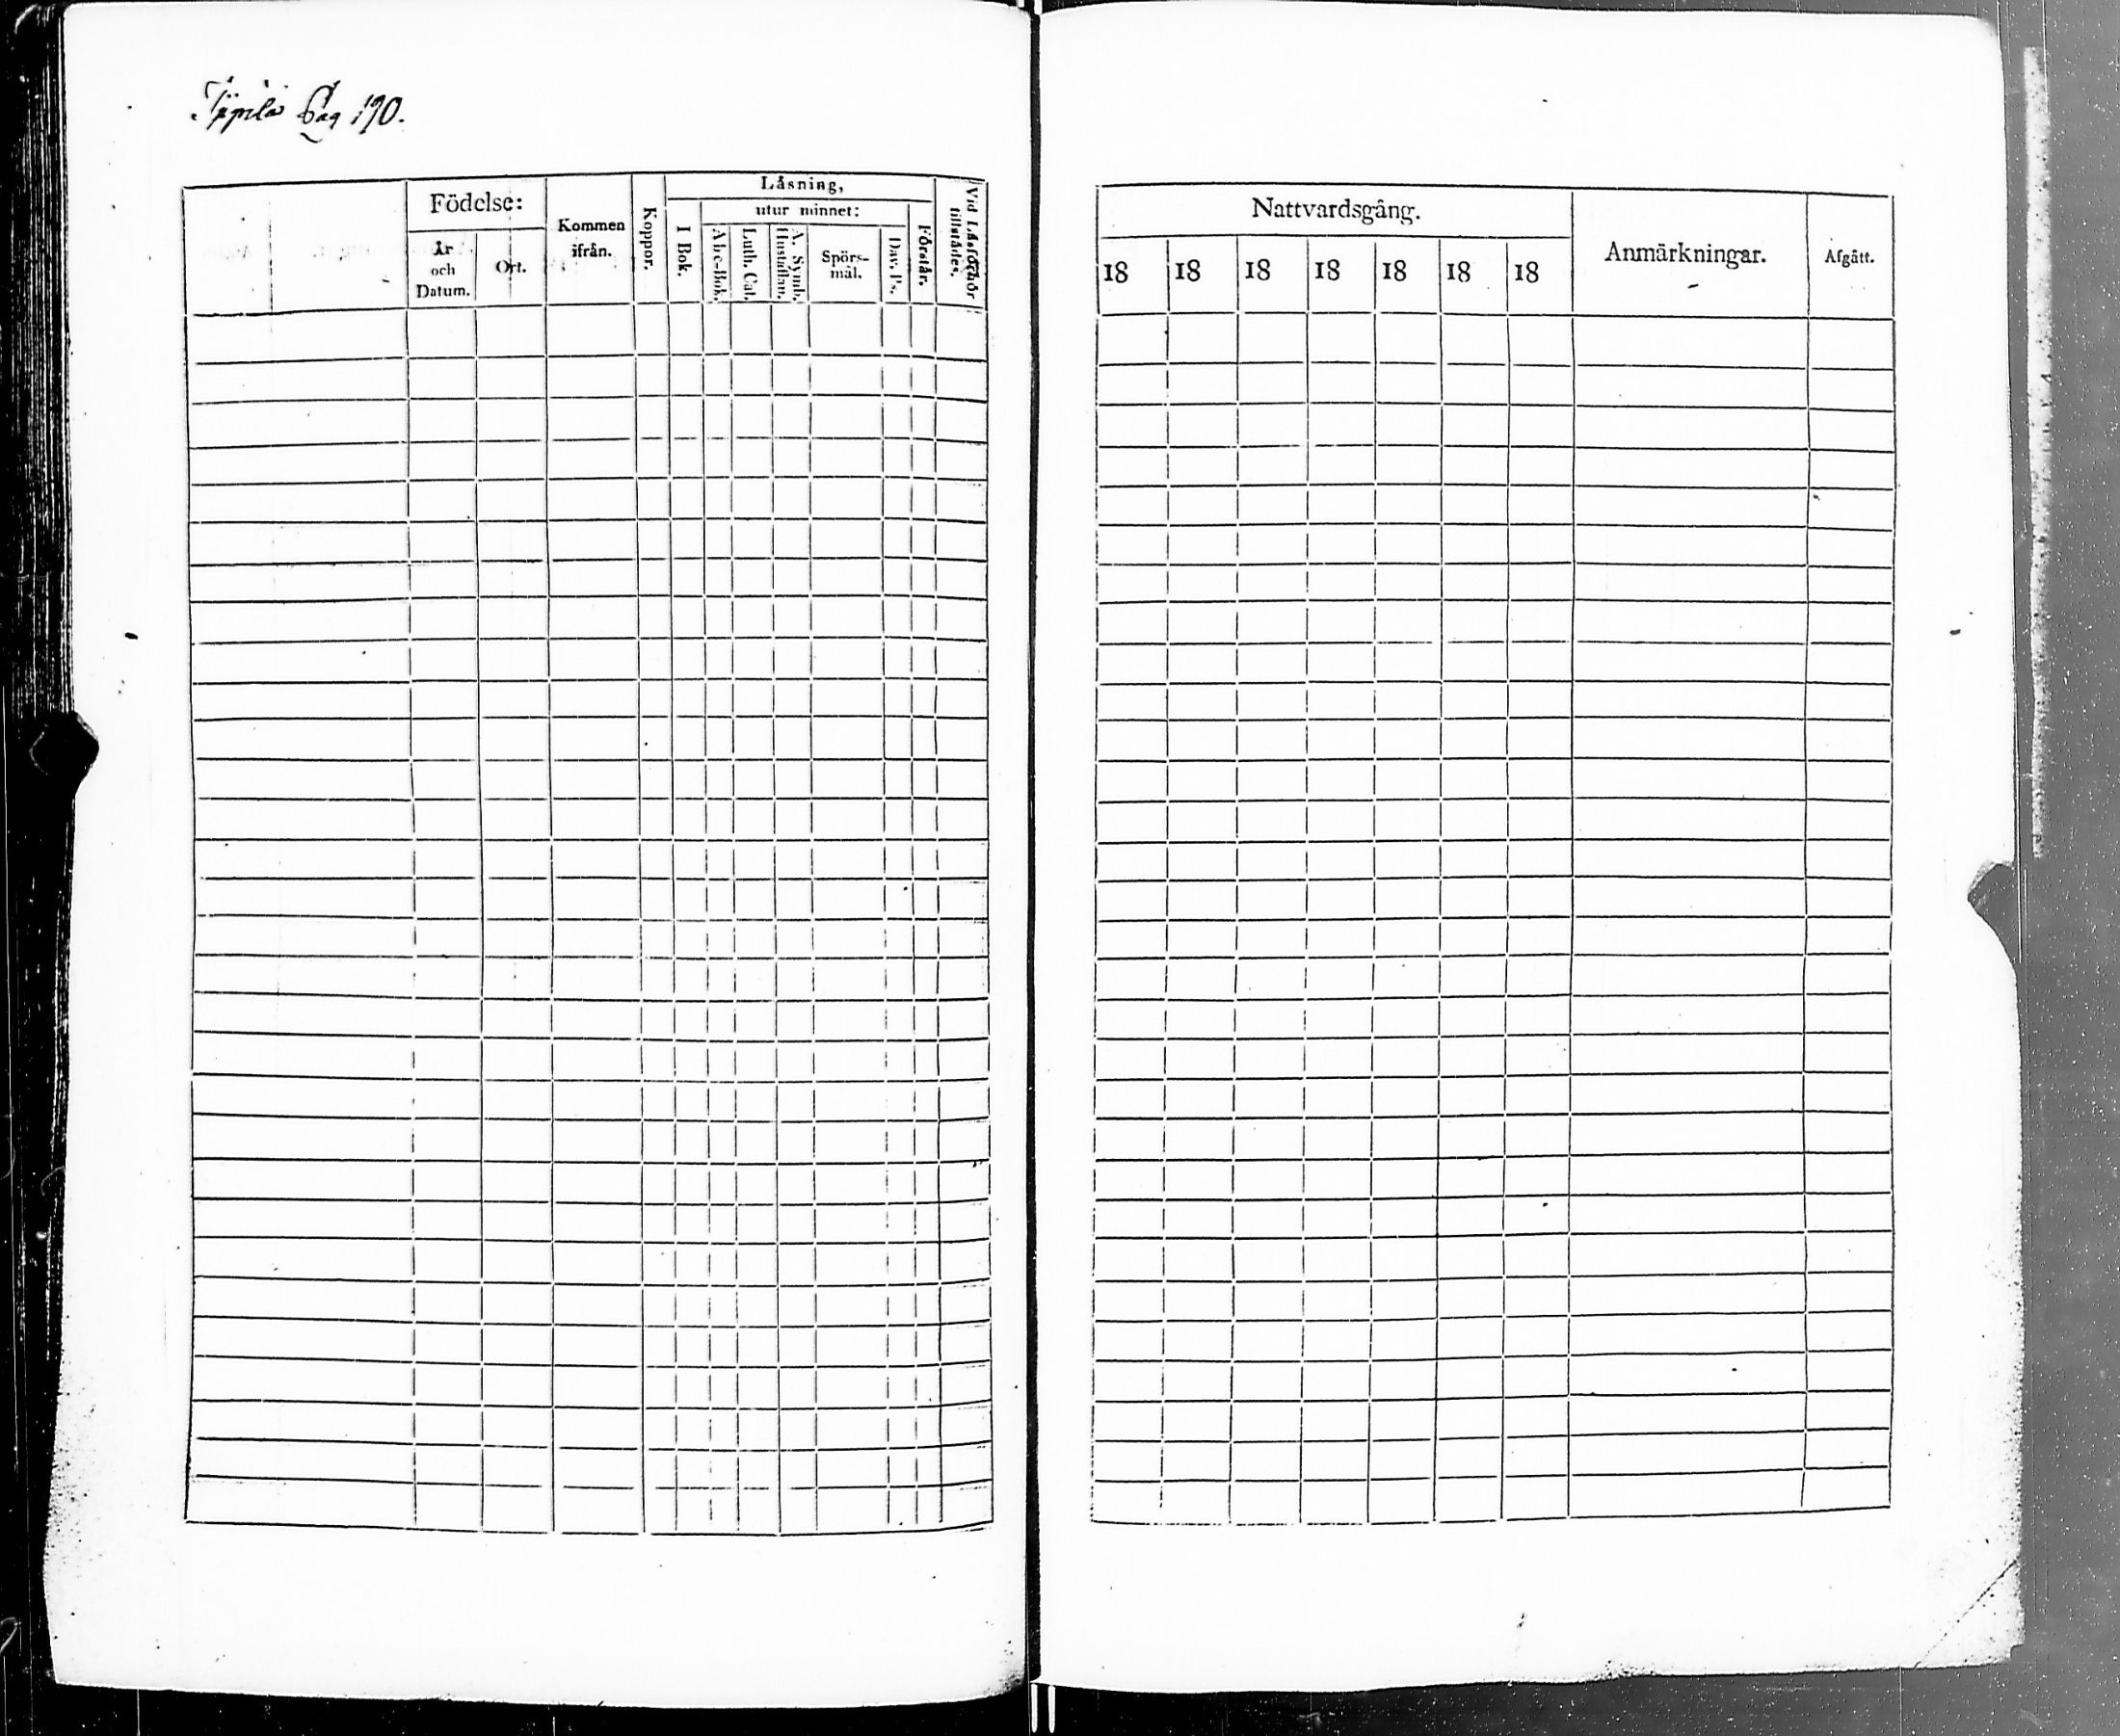 Pag 190.
Födelse:
År
och
Datum.
Ort.
Kommen
ifrån.
Koppor.
Låsning,
I Bok.
utur minnet:
Abc-Bok.
Luth. Cat.
A. Symb.
Hustaflan.
Spörs-
mål.
Dav. Ps.
Förstår.
Vid Låsförhör
tillstådes.
Nattvardsgång.
18 18 18 18 18 18 18
Anmärkningar.
Afgått.